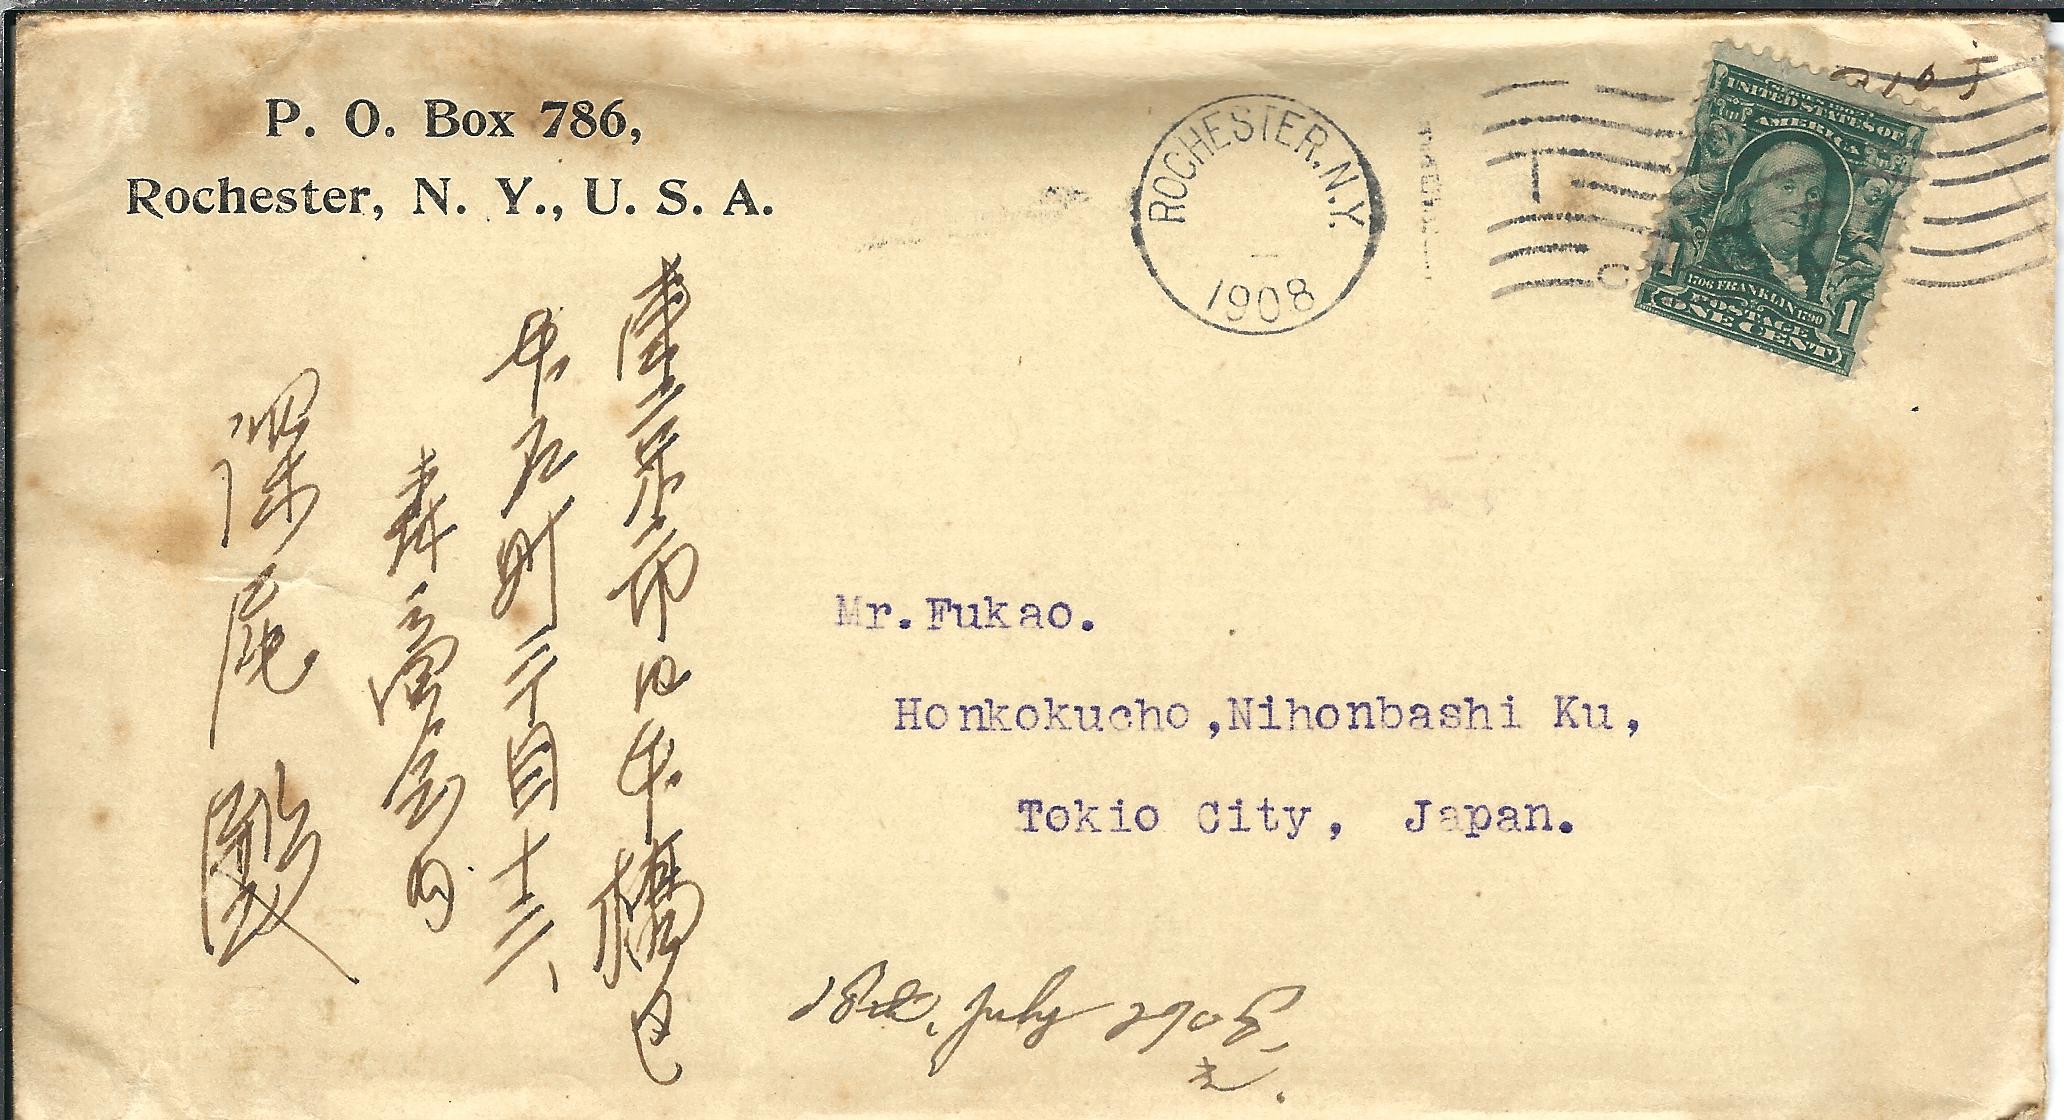 P. O. Box 786,
Rochester, N. Y., U. S. A.
ROCHESTER, N.Y.
1908
UNITED STATES OF
AMERICA
1706 FRANKLIN 1790
1 1
POSTAGE
ONE CENT
東京市日本橋区
本石町二丁目十三
森商会内
深尾殿
Mr. Fukao.
Honkokucho, Nihonbashi Ku,
Tokio City, Japan.
18th July 1908